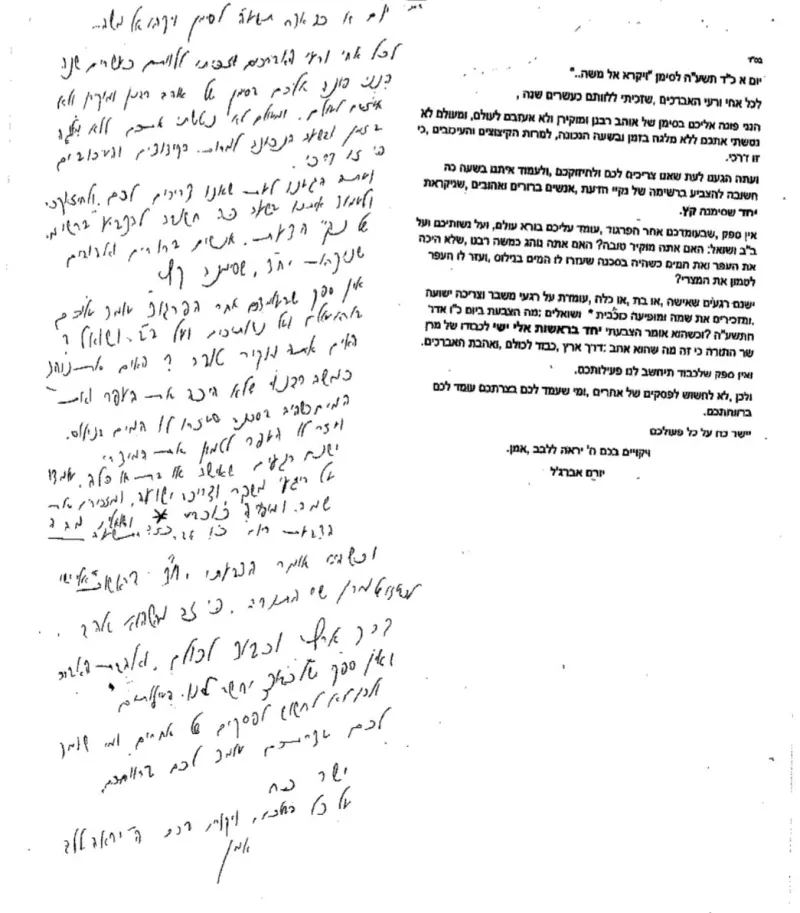 בס"ד
יום א כ"ד תשע"ה לסימן "ויקרא אל משה.."
לכל אחי ורעי האברכים ,שזכיתי ללוותם כעשרים שנה ,
הנני פונה אליכם בסימן של אוהב רבנן ומוקירן ולא אעזבם לעולם, ומעולם לא
נטשתי אתכם ללא מלגה בזמן ובשעה הנכונה, למרות הקיצוצים והעיכובים, כי
זו דרכי.
ועתה הגענו לעת שאנו צריכים לכם ולחיזוקכם, ולעמוד איתנו בשעה כה
חשובה להצביע ברשימה של נקיי הדעת, אנשים ברורים ואהובים ,שניקראת
יחד שסימנה קץ.
אין ספק, שבעומדכם אחר הפרגוד ,עומד עליכם בורא עולם, ועל נשותיכם ועל
ב"ב ושואל: האם אתה מוקיר טובה? האם אתה נוהג כמשה רבנו, שלא היכה
את העפר ואת המים כשהיה בסכנה שעזרו לו המים בנילוס, ועזר לו העפר
לטמון את המצרי?
ישנם רגעים שאישה, או בת ,או כלה, עומדת על רגעי משבר וצריכה ישועה
,ומזכירים את שמה ומופיעה כוכבית * ושואלים ;מה הצבעת ביום כ"ו אדר
תשע"ה ?וכשהוא אומר הצבעתי יחד בראשות אלי ישי לכבודו של מרן
שר התורה כי זה מה שהוא אהב :דרך ארץ ,כבוד לכולם ,ואהבת האברכים.
ואין ספק שלכבוד תיחשב לנו פעילותכם.
ולכן ,לא לחשוש לפסקים של אחרים ,ומי שעמד לכם בצרתכם עומד לכם
ברווחתכם.
יישר כח על כל פעולכם
ויקויים בכם ה' יראה ללבב ,אמן.
יורם אברג'ל
לכל אחי ורעי האברכים שזכיתי ללוותם כעשרים שנה
הנני פונה אליכם בסימן של אוהב רבנן ומוקירן ולא
בזמן ובשעה הנכונה למרות הקיצוצים והעיכובים
כי זו דרכי.
ועתה הגענו לעת שאנו צריכים לכם ולחיזוקכם
ולעמוד איתנו בשעה כה חשובה להצביע ברשימה
של נקיי הדעת. אנשים ברורים ואהובים
שניקראת יחד, שסימנה קץ
אין ספק שבעומדכם אחר הפרגוד עומד עליכם
האם אתה מוקיר טובה ? האם אתה נוהג
כמשה רבנו שלא היכה את העפר ואת
ועזר לו העפר לטמון את המצרי
ישנם רגעים שאישה או בת או כלה, עומדת
על רגעי משבר וצריכה ישועה, ומזכירים את
וכשהוא אומר הצבעתי, יחד בראשות אלי ישי
דרך ארץ וכבוד לכולם, ואהבת האברכים
ולכן לא לחשוש לפסקים של אחרים ומי שעמד
לכם בצרתכם עומד לכם ברווחתכם.
ישר כח
אמן